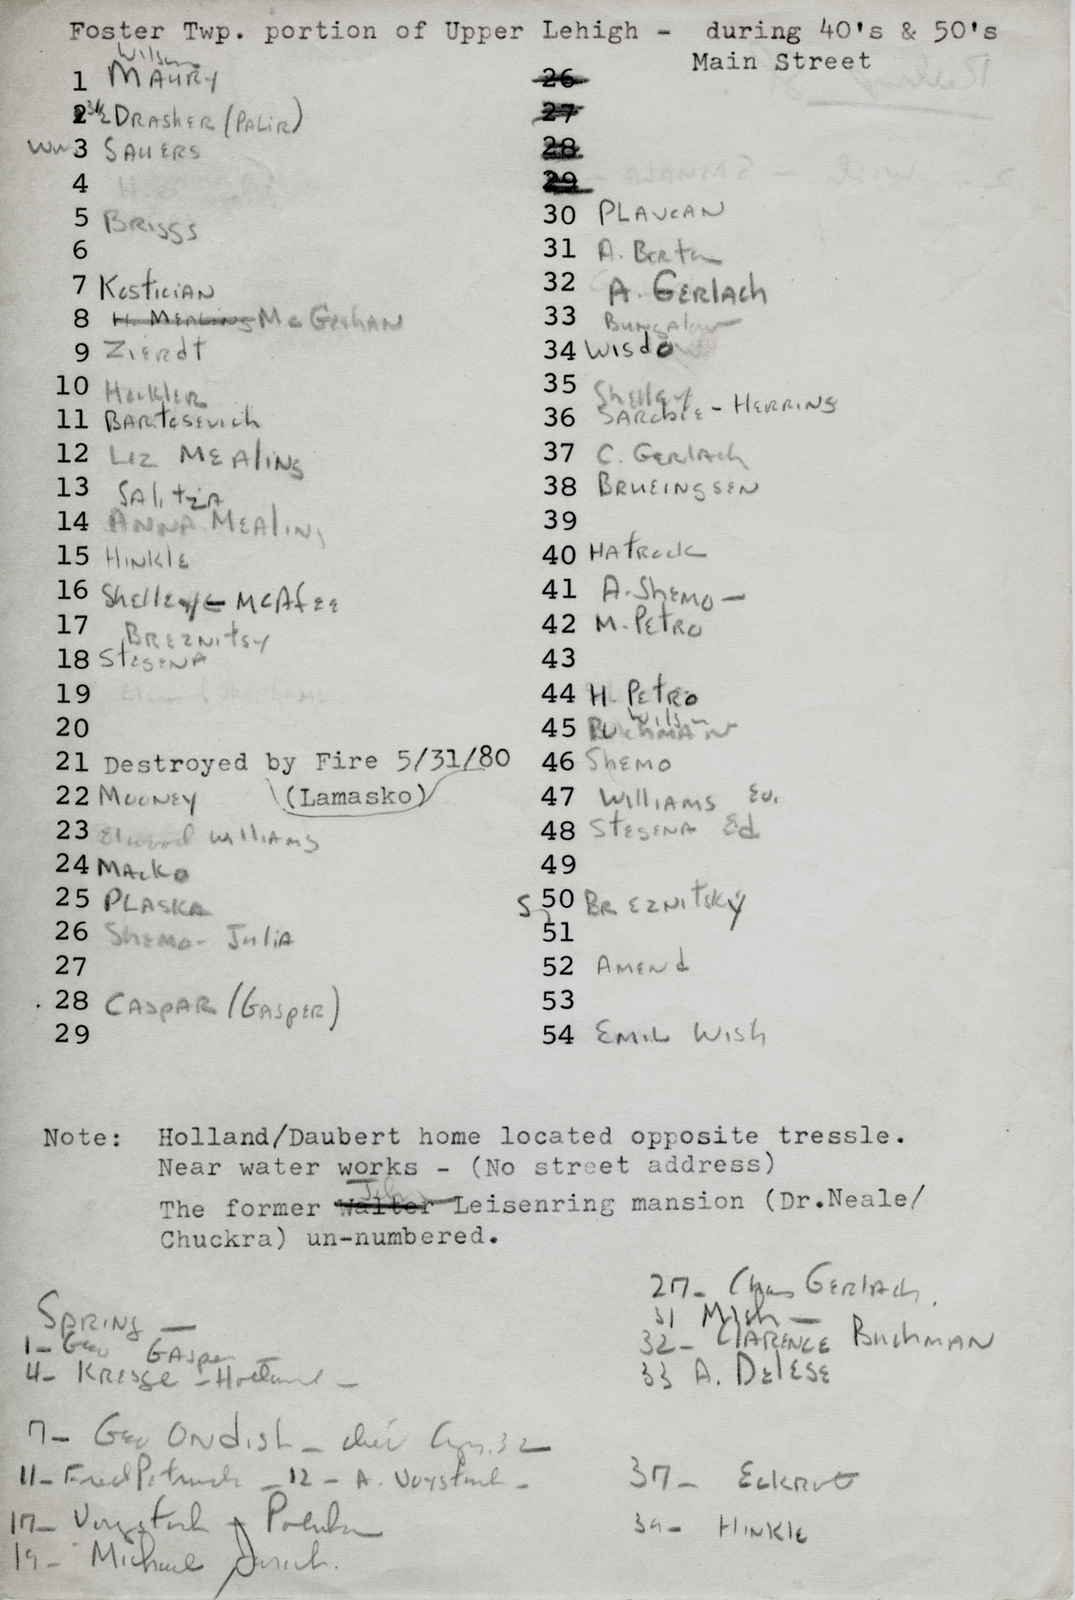 Foster Twp. portion of Upper Lehigh - during 40's & 50's
Main Street
Wilson
1 MAURY
2 DRASHER (PALIR)
3 SAUERS
4
5 BRIGGS
6
7 KOSTICIAN
8 H. MEALING McGEEHAN
9 ZIERDT
10 HECKLER
11 BARTOSEVICH
12 LIZ MEALING
13 SALITZA
14 ANNA MEALING
15 HINKLE
16 Shelley - McAFEE
17 BREZNITSY
18 STEGENA
19
20
21 Destroyed by Fire 5/31/80
22 MOONEY (Lamasko)
23 Elwood WILLIAMS
24 MACKO
25 PLASKA
26 SHEMO- Julia
27
28 CASPAR (GASPER)
29
26
27
28
29
30 PLAVCAN
31 A. Berta
32 A. GERLACH
33 Bungalow
34 WISDO
35 Shelley
36 SARCHIE - HERRING
37 C. GERLACH
38 BRUEINGSEN
39
40 HATROCK
41 A. SHEMO -
42 M. PETRO
43
44 H. PETRO
Wilson
45 BUCHMAN
46 SHEMO
47 WILLIAMS Ev.
48 STEGENA Ed
49
50 BREZNITSKY
51
52 AMEND
53
54 EMIL WISH
Note: Holland/Daubert home located opposite tressle.
Near water works - (No street address)
John
The former Walter Leisenring mansion (Dr.Neale/
Chuckra) un-numbered.
SPRING -
1- Geo GASPER -
4- KRESGE - Holland -
7- Geo ONDISH -
11- Fred Petruck - 12 - A. Voystock -
17- Voystock
19- Michael
27- Chas GERLACH.
31
32- CLARENCE BUCHMAN
33 A. DELESE
37- ECKROT
39- HINKLE